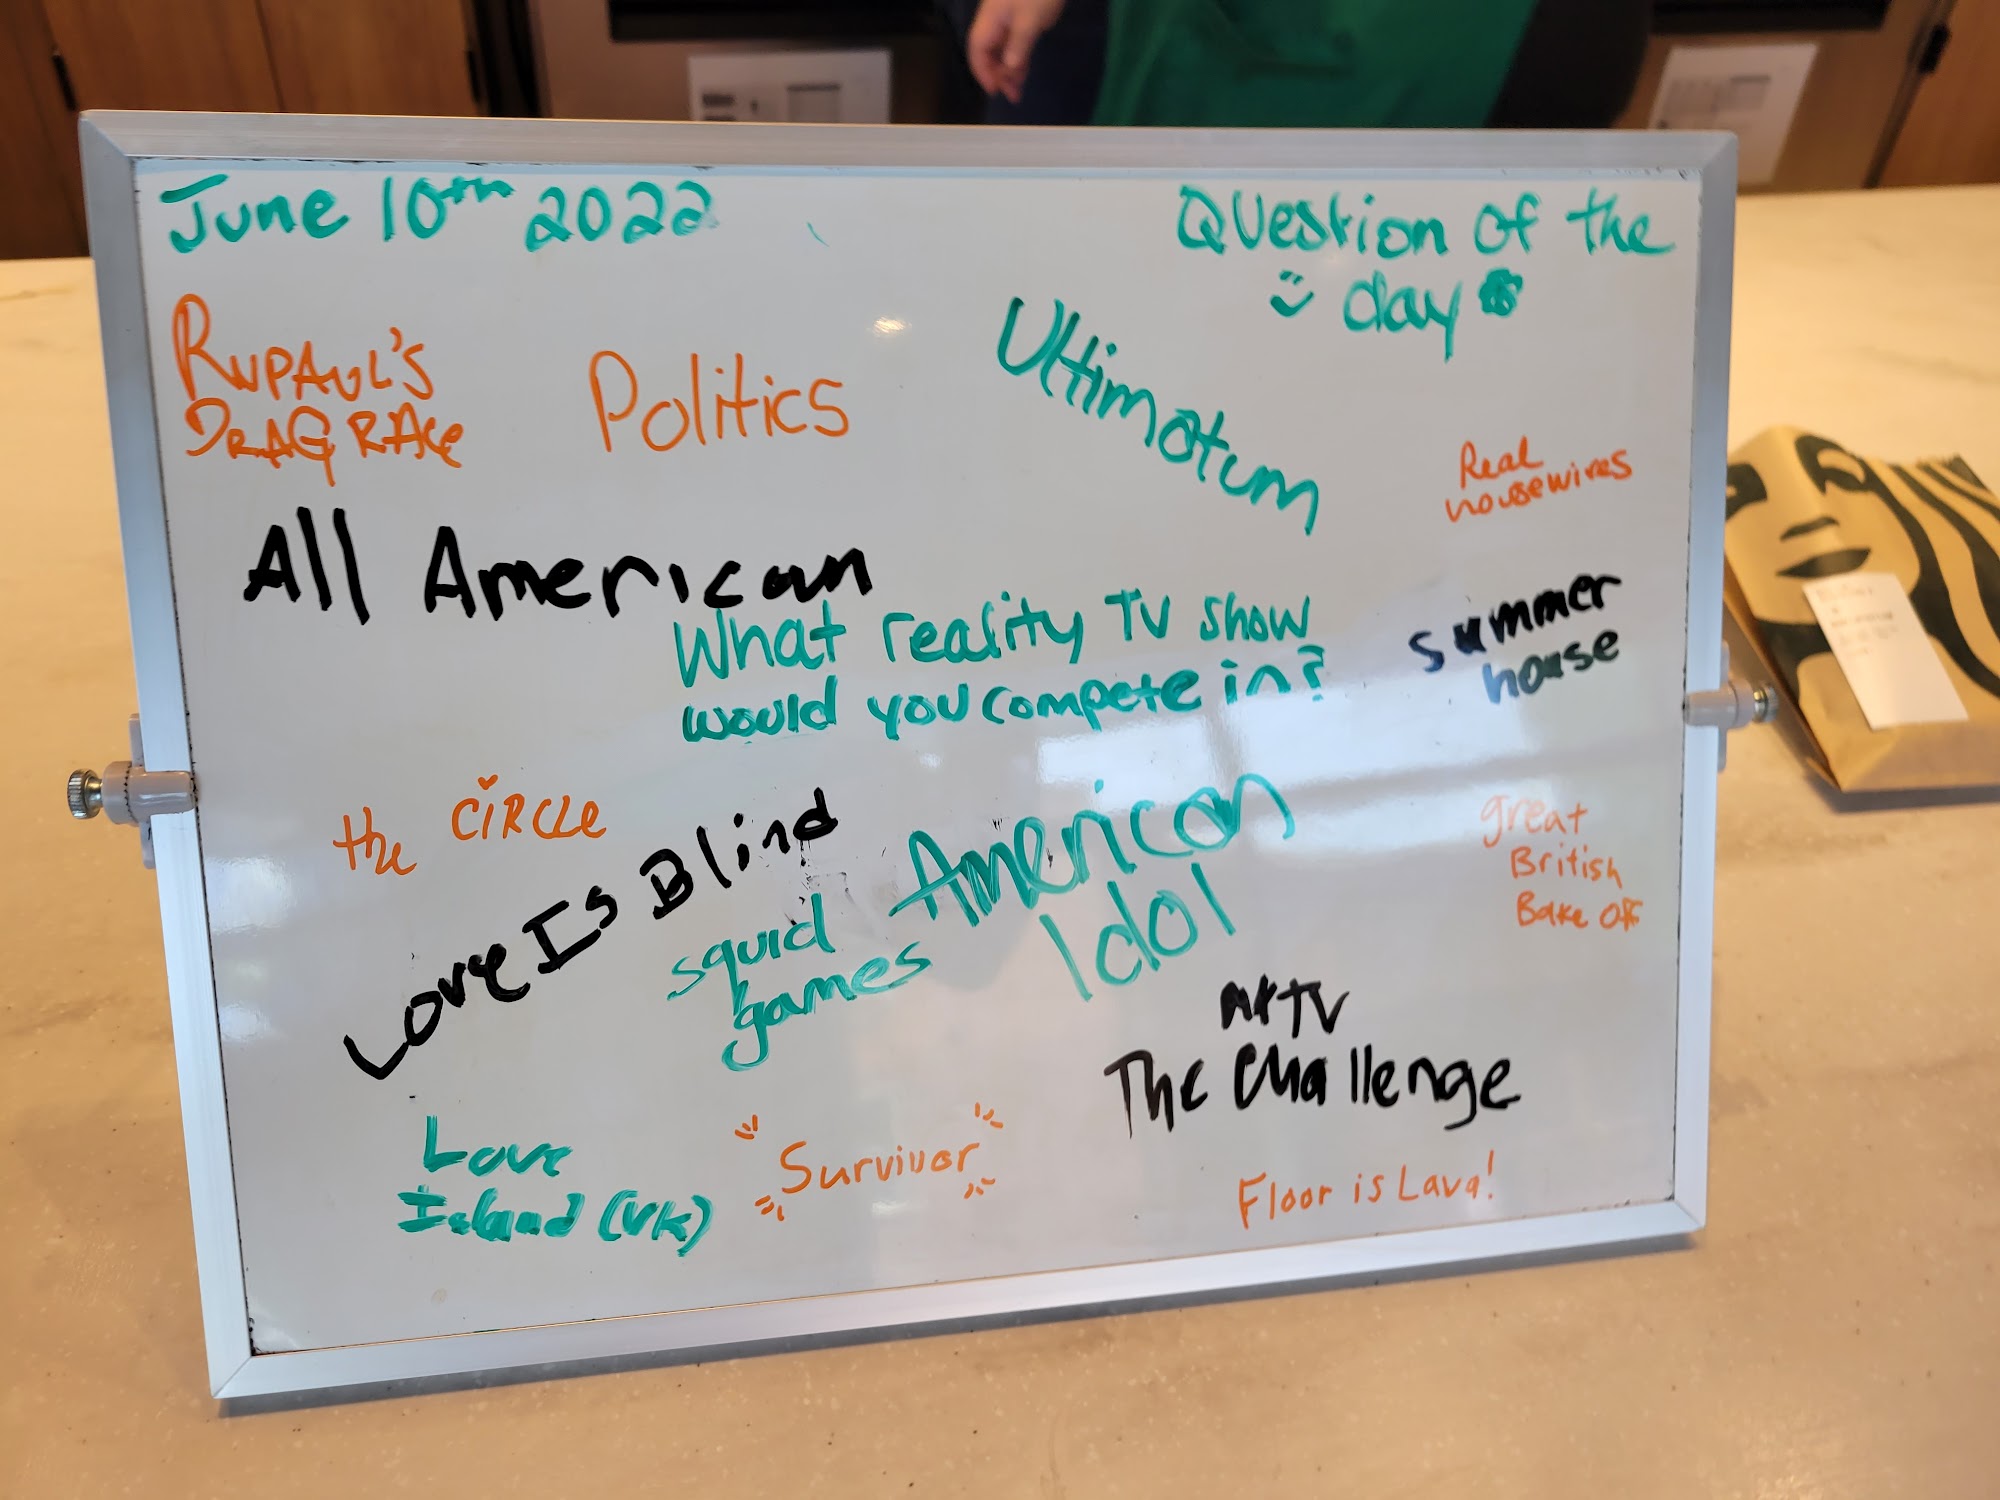 June 10th 2022
Question of the
day
RuPAUL'S
DRAG RACE
Politics
Ultimatum
Real
housewives
All American
What reality TV show
would you compete in?
summer
house
the CiRCLE
Love Is Blind
squid
games
American
Idol
great
British
Bake Off
MTV
The Challenge
Love
Island (UK)
Survivor
Floor is Lava!